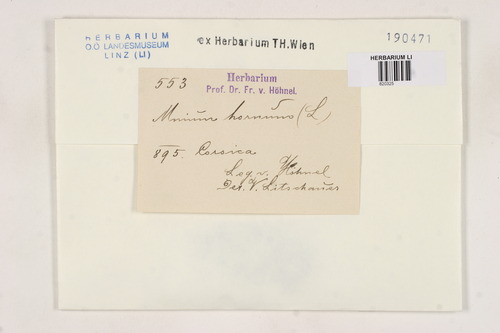 HERBARIUM
O.Ö LANDESMUSEUM
LINZ (LI)
ex Herbarium TH.Wien
190471
HERBARIUM LI
820325
553
Herbarium
Prof. Dr. Fr. v. Höhnel.
Mnium hornum (L)
895. Corsica
Leg. v. Höhnel
Det. V. Litschauer